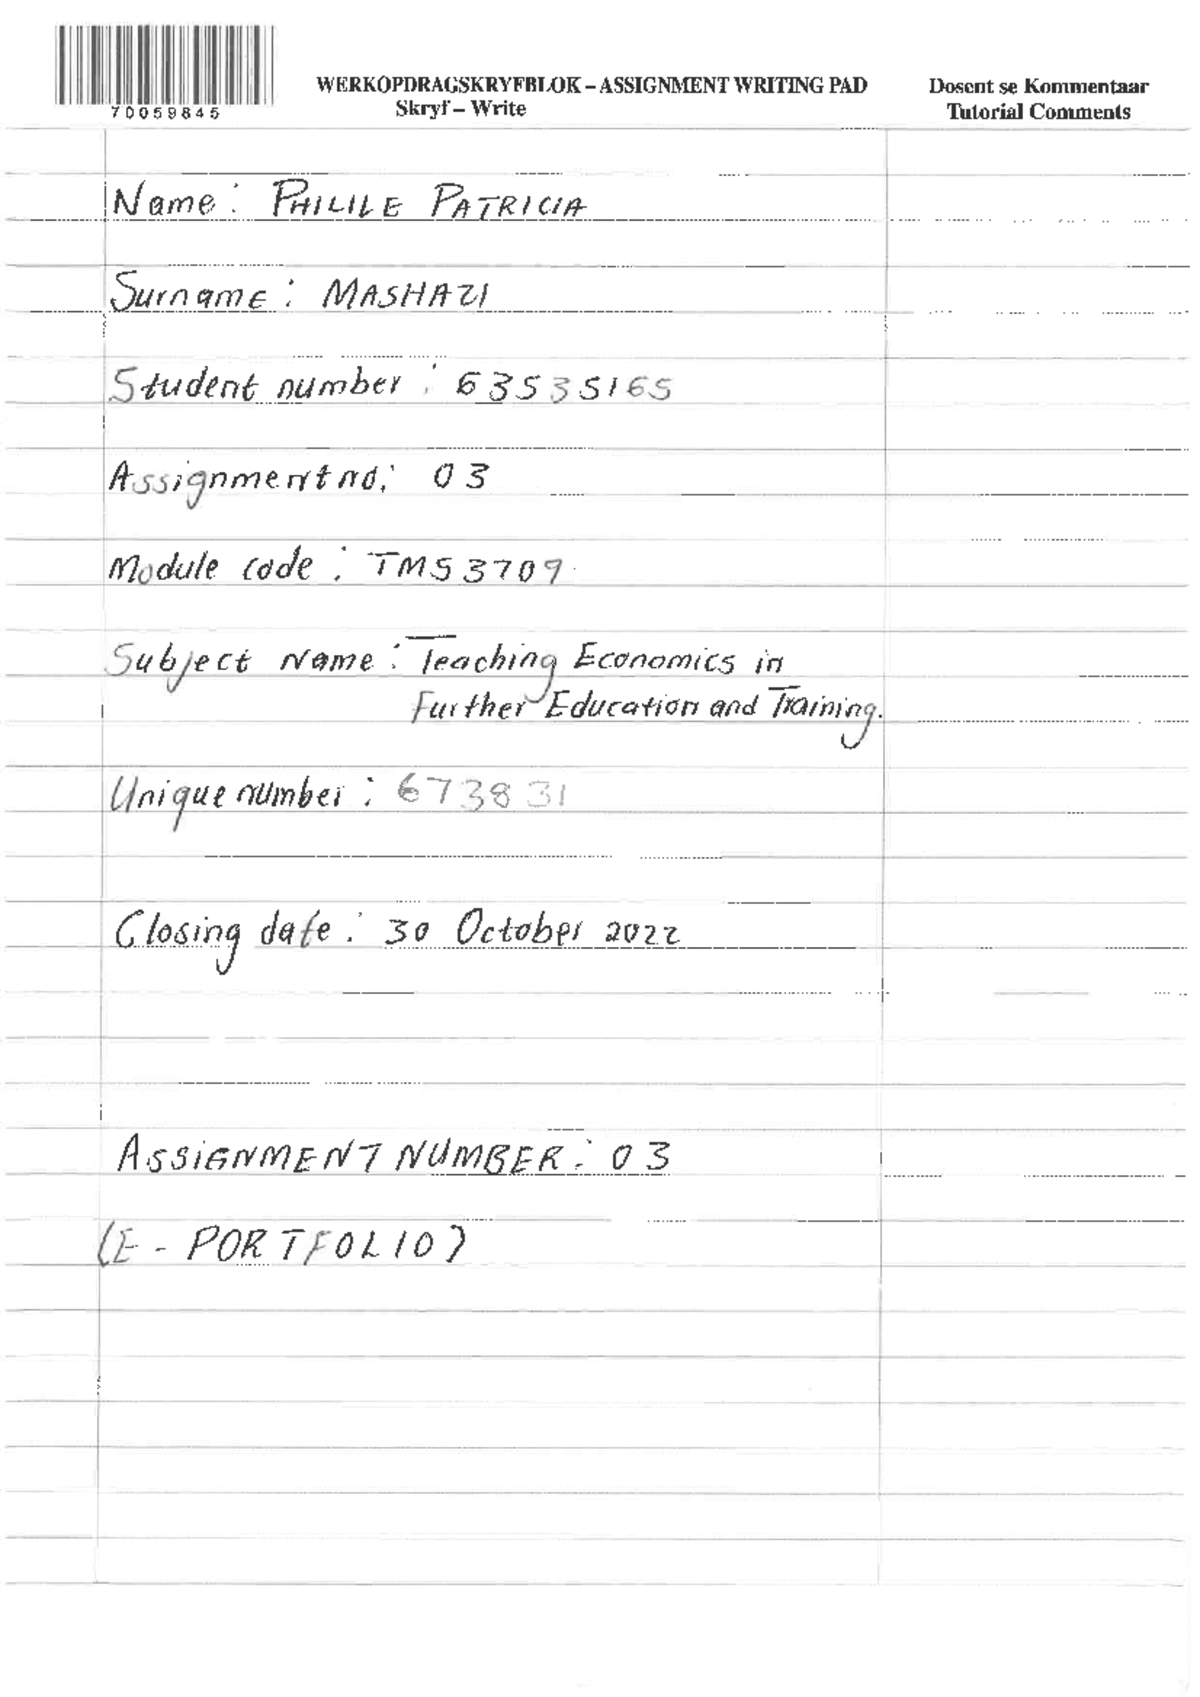 WERKOPDRAGSKRYFBLOK – ASSIGNMENT WRITING PAD
Skryf – Write
Dosent se Kommentaar
Tutorial Comments
70059845
Name: PHILILE PATRICIA
Surname: MASHAZI
Student number: 63535165
Assignment no: 03
Module code: TMS3709
Subject Name: Teaching Economics in
Further Education and Training.
Unique number: 673831
Closing date: 30 October 2022
ASSIGNMENT NUMBER: 03
(E-PORTFOLIO)